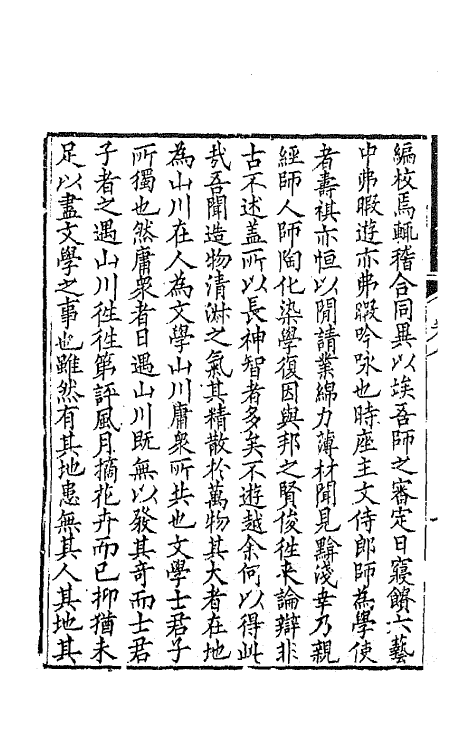 編校焉輒稽合同異以埃吾師之審定日寢饋六藝
中弗暇遊亦弗暇吟咏也時座主文侍郎師為學使
者壽祺亦恒以閒請業綿力薄材聞見黭淺幸乃親
經師人師陶化染學復因與邦之賢俊徃來論辯非
古不述蓋所以長神智者多矣不遊越余何以得此
哉吾聞造物清淋之氣其精散於萬物其大者在地
為山川在人為文學山川庸衆所共也文學士君子
所獨也然庸衆者日遇山川既無以發其奇而士君
子者之遇山川徃徃第評風月摘花卉而已抑猶未
足以盡文學之事也雖然有其地患無其人其地其